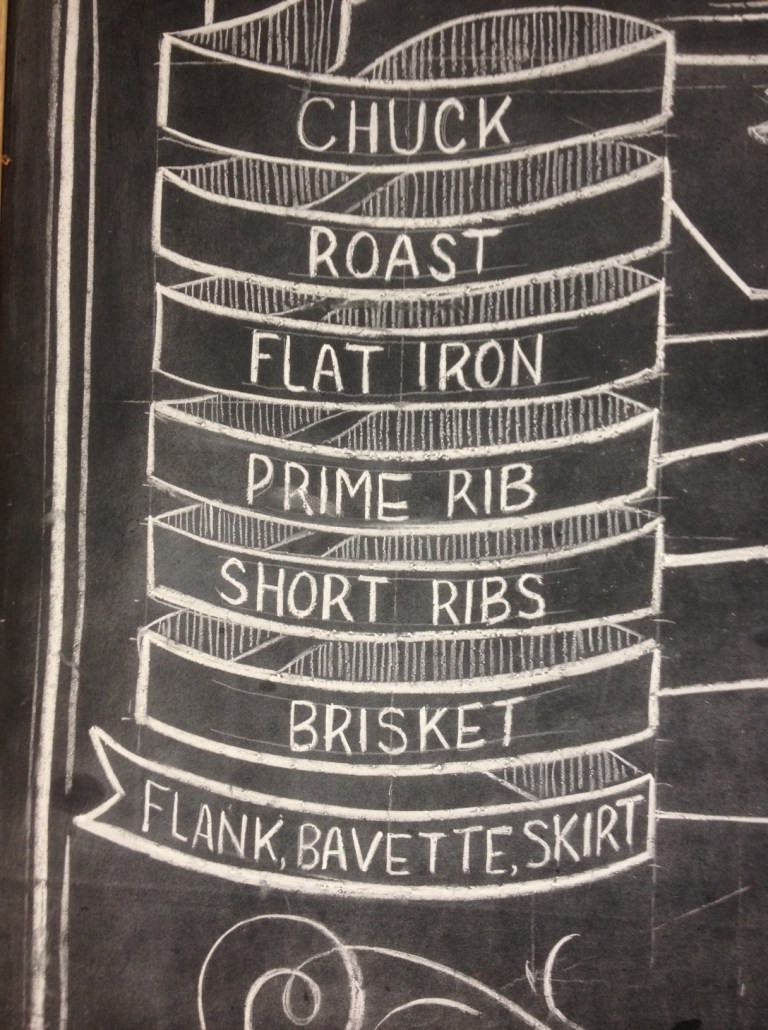 CHUCK
ROAST
FLAT IRON
PRIME RIB
SHORT RIBS
BRISKET
FLANK, BAVETTE, SKIRT